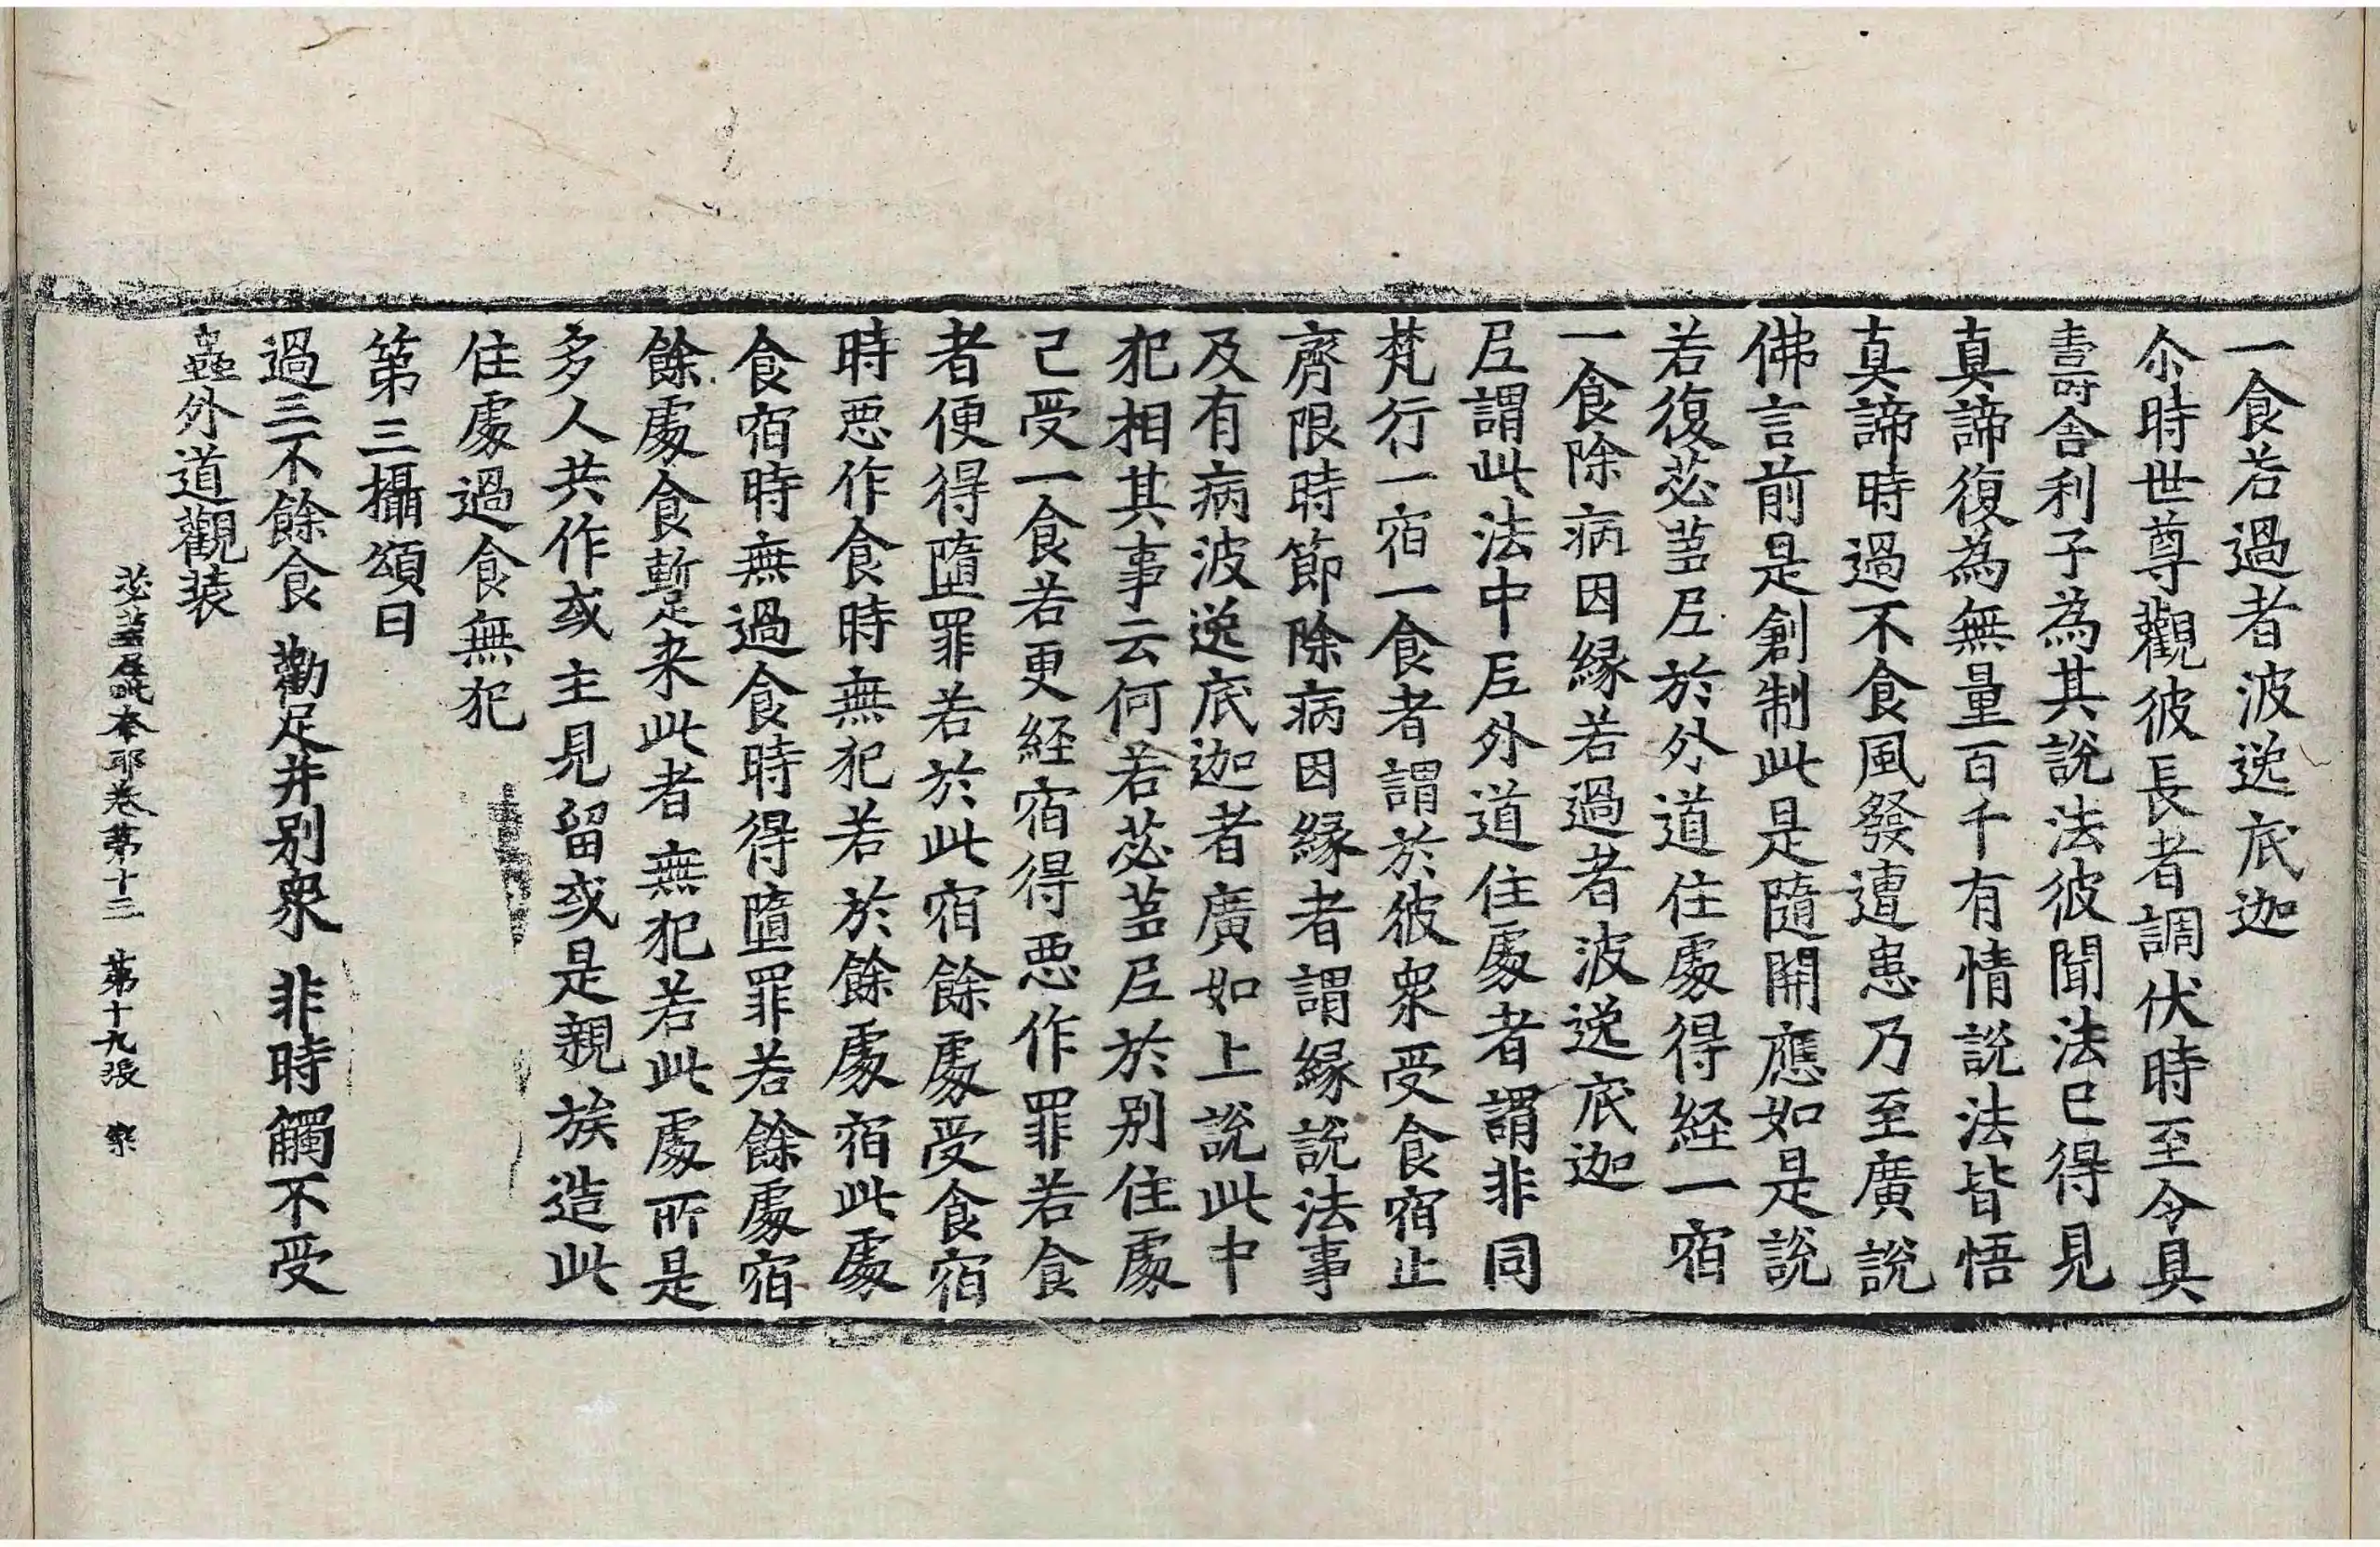 一食若過者波逸底迦
尒時世尊觀彼長者調伏時至令具
壽舍利子為其說法彼聞法已得見
真諦復為無量百千有情說法皆悟
真諦時過不食風發遭患乃至廣說
佛言前是創制此是隨開應如是說
若復苾蒭尼於外道住處得経一宿
一食除病因緣若過者波逸底迦
尼謂此法中尼外道住處者謂非同
梵行一宿一食者謂於彼衆受食宿止
齊限時節除病因緣者謂緣說法事
及有病波逸底迦者廣如上說此中
犯相其事云何若苾蒭尼於別住處
已受一食若更経宿得惡作罪若食
者便得墮罪若於此宿餘處受食宿
時惡作食時無犯若於餘處宿此處
食宿時無過食時得墮罪若餘處宿
餘處食暫來此者無犯若此處所是
多人共作或主見留或是親族造此
住處過食無犯
第三攝頌曰
過三不餘食 勸足并別衆 非時觸不受
蟲外道觀装
苾蒭尼毗奈耶卷第十三 第十九張